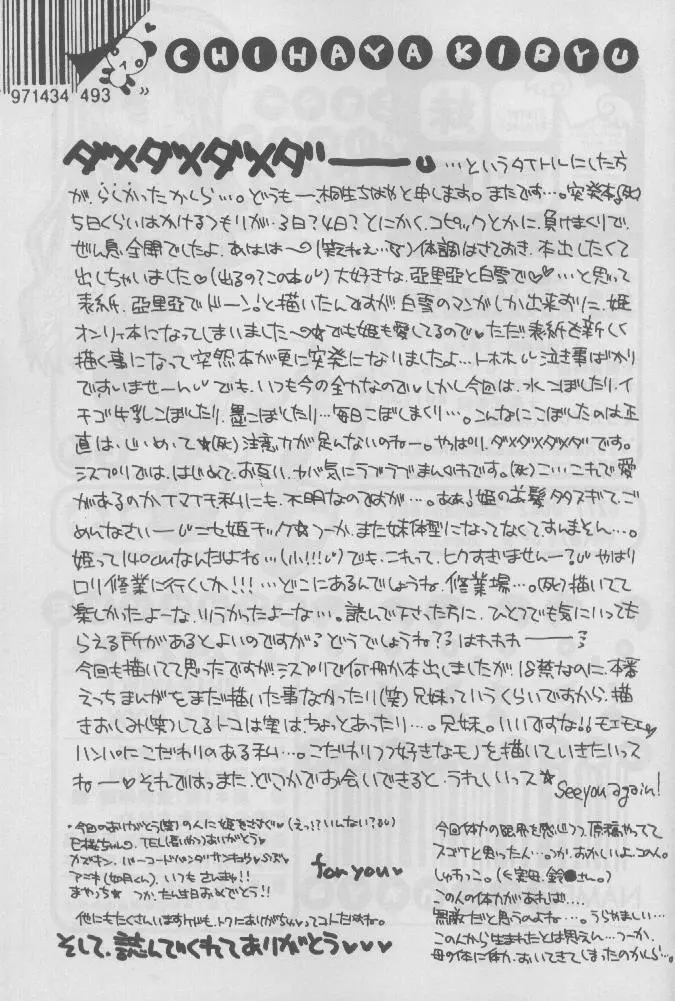 971434 493
CHIHAYA KIRYU
ダメダメダメダーーー。 …というタイトルにした方
が、らしかったかしら…。どうもー、桐生ちはやと申します。またです…。突発本。(死)
5日くらいはかけるつもりが、3日?4日?とにかく、コピックとかに、負けまくりで、
ぜん息全開でしたよ、あはは〜(笑えねぇ…死)体調はさておき、本出したくて
出しちゃいました♡(出るの?この本)大好きな、亞里亞と白雪で♡♡…と思って
表紙、亞里亞でドーン!と描いたんですが白雪のマンガしか出来おりに、姫
オンリー本になってしまいました〜☆でも姫も愛してるので♥ただ、表紙を新しく
描く事になって突然本が更に突発になりましたよ…トホホ 泣き事ばかり
ですいませーん でも、いつも今の全力なので♥しかし今回は、水こぼしたり、イ
チゴ牛乳こぼしたり、墨こぼしたり…毎日こぼしまくり…。こんなにこぼしたのは正
直は、じめて★(死)注意力が足んないのねー。やっぱり、ダメダメダメダです。
シスプリでは、はじめて、お互い、ヤバ気にラブラブまんがです。(死)こ…これで愛
があるのかイマイチ、私にも、不明なのですが…。ああ!姫のお髪タクスギて、ご
めんなさいー ニセ姫チック☆つーか、また妹体型になってなくて、すいません…。
姫って140cmなんだよね…(小!!!)でも、これって、ヒクすぎませんー? やはり
ロリ修業に行くしか!!!…どこにあるんでしょうね、修業場…。(死)描いてて
楽しかったよーな、ツラかったよーな…。読んで下さった方に、ひとつでも気にいっても
らえる所があるとよいのですが?どうでしょうね??はわわわーーー
今回も描いてて思ったですが、シスプリで何冊か本出しましたが、18禁なのに、本番
えっちまんがをまだ描いた事なかったり(笑)兄妹っていうくらいですから、描
きおしみ(笑)してるトコは実は、ちょっとあったり…。兄妹。いいですな!!モエモエ♥
ハンパにこだわりのある私…。こだわりつつ好きなモノを描いていきたいっス
ねー♥それではっまた、どこかでお会いできると、うれしいっス★
See you again!
・今回のありがとう(笑)の人に姫をさずく♥(えっ!?いらない?)
TEL(長いやつ)ありがとう♥
カズキン、バーコード
アニキ(如月くん)、いつもさんきゅ!!
まやっち★ つか、たん生日おめでとう!!
他にもたくさんいますケド、トクにありがちゅってコトだわね。
for you♥
そして、読んでくれてありがとう♥♥♥
今回体力の限界を感じつつ、原稿やってて
スゴイと思った人…つか、おかしいよ、コの人。
しゅわっこ。(を実母、鈴●さん。)
この人の体力があれば…、
無敵だと思うのよね…。うらやましい…
この人から生まれたとは思えん…つーか、
母の体に体力、おいてきてしまったのかしら…。